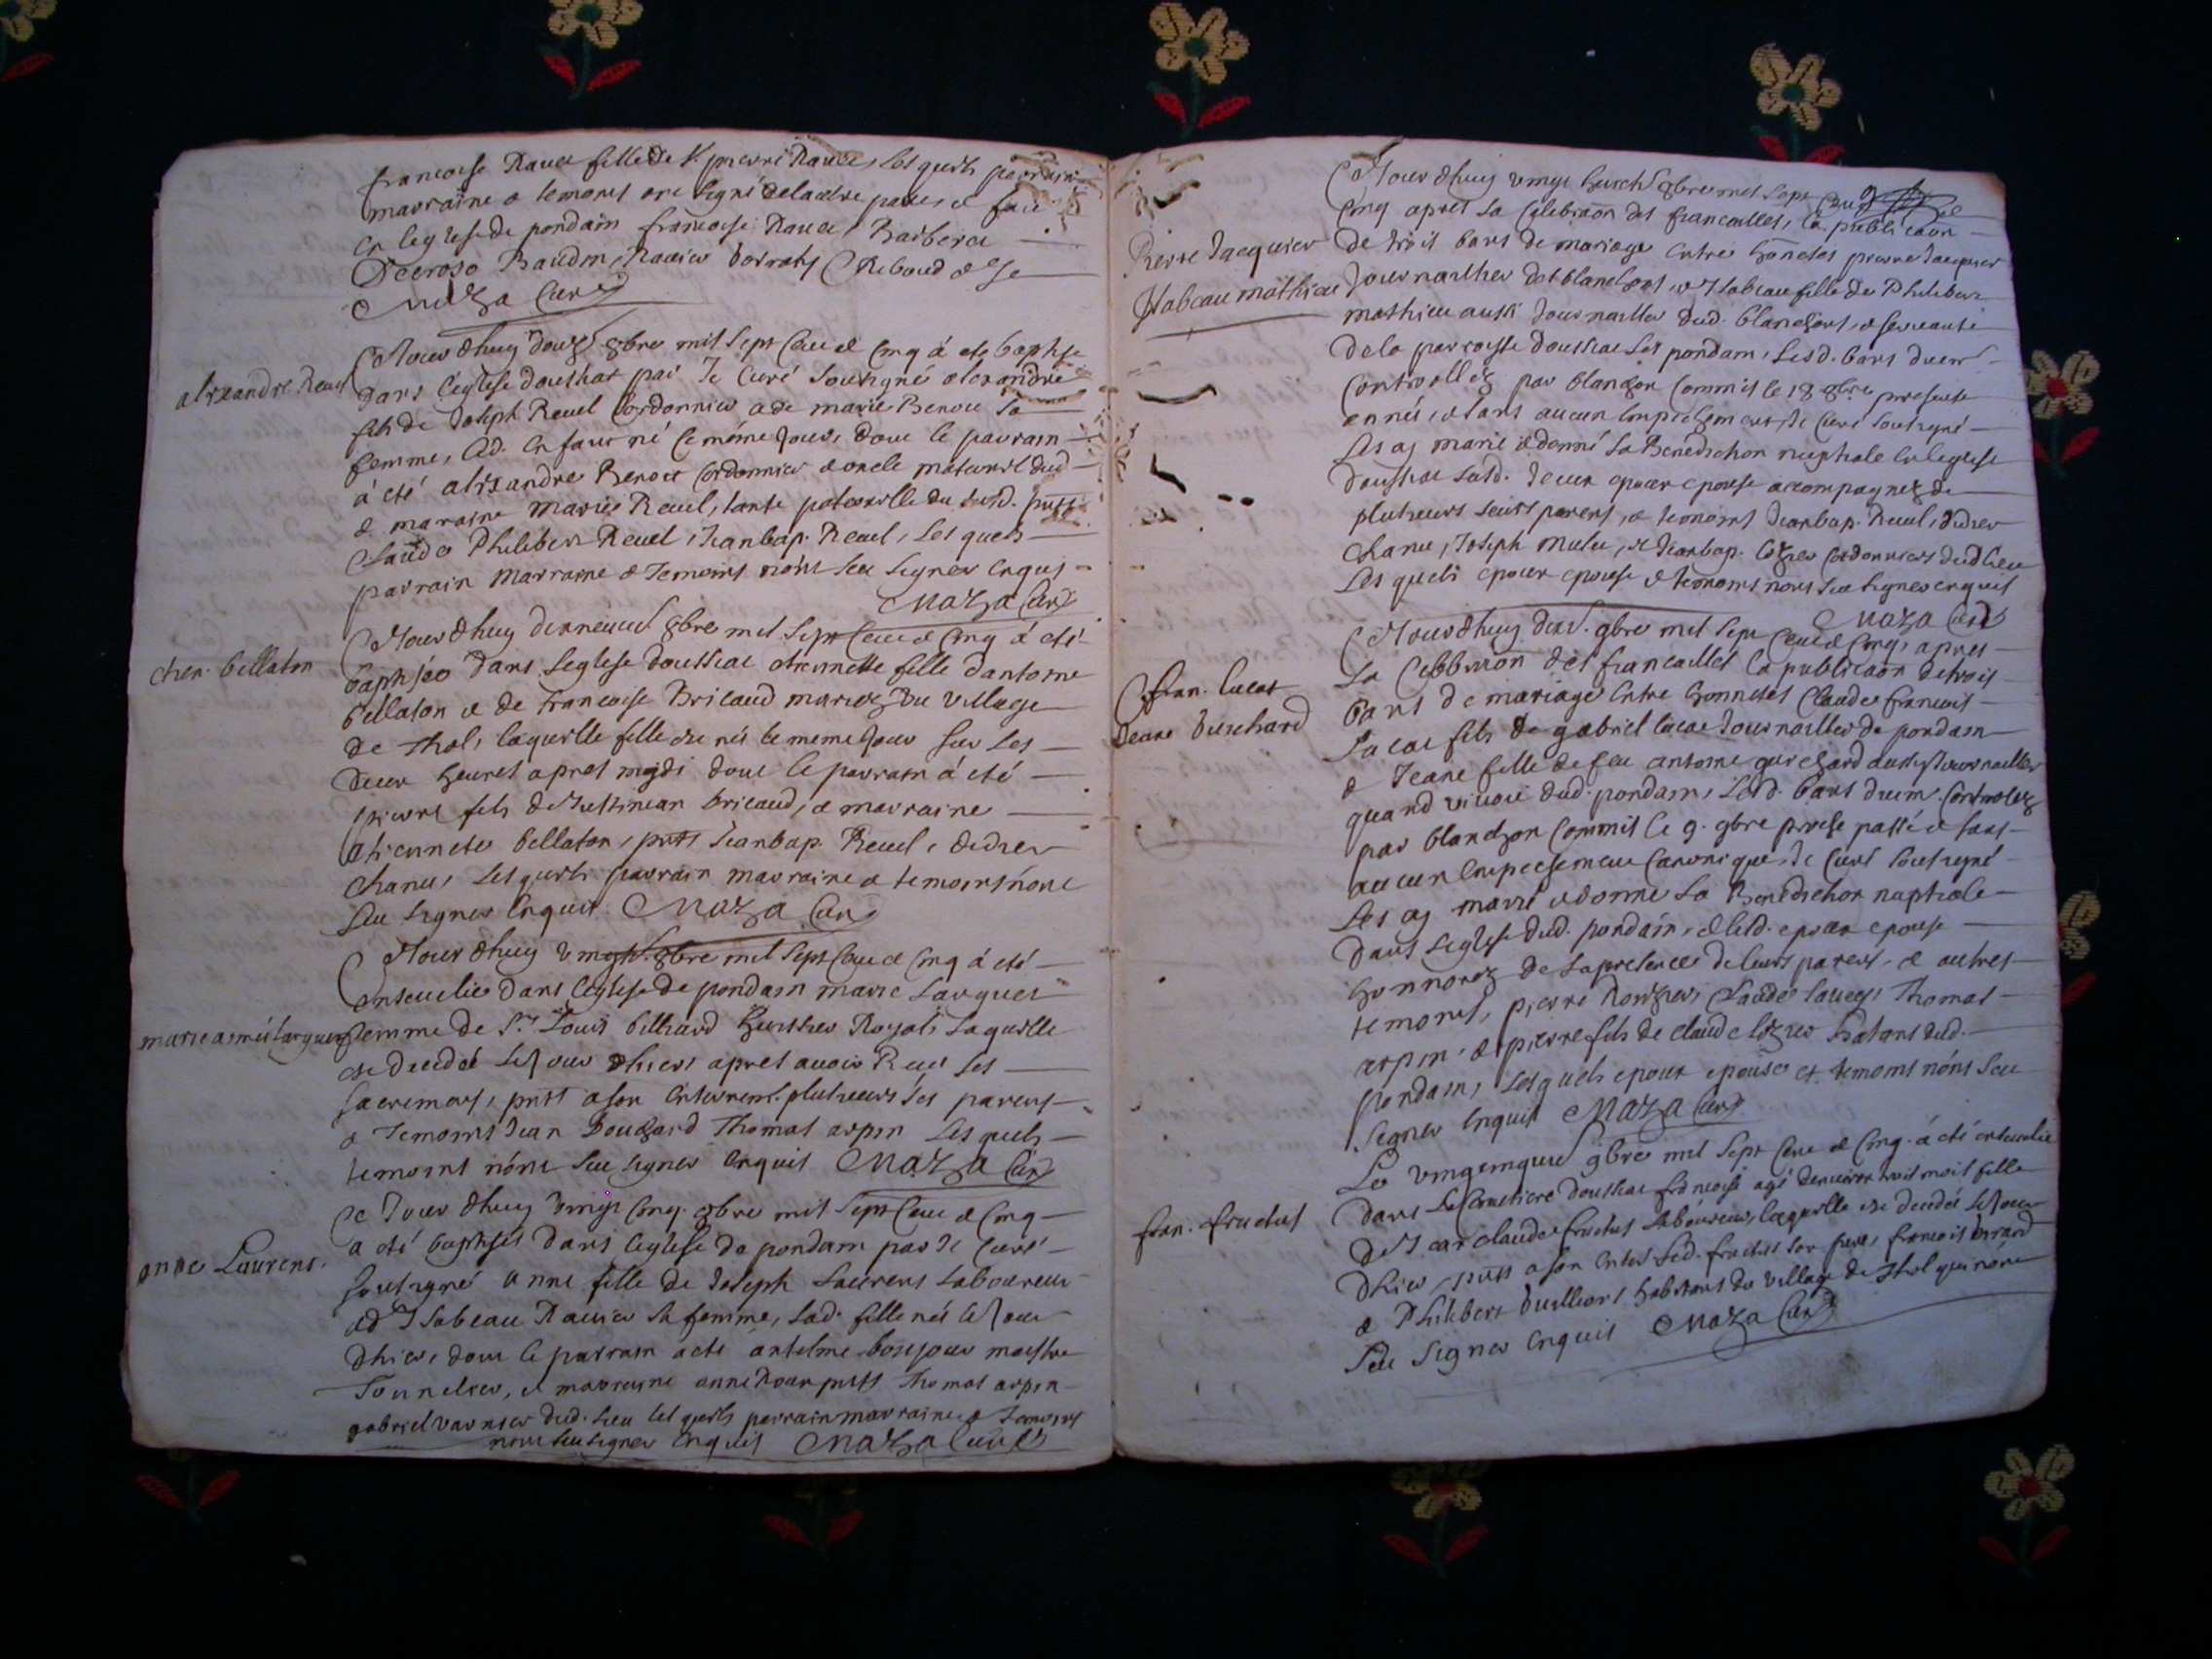 francoise Ravet fille de Sr. pierre Ravet, lesquels parrain
marraine & temoins ont signé de la dte parte, & fait
en leglise de pondain francoise Ravet, Barbera
Baudin, Ravier Reboud
Moza Curé
alexandre Reuel
Ajourdhuy douze 8bre mil sept cent & cinq à eté baptise
dans l'eglise doussiat par Je Curé soussigné alexandre
fils de Joseph Revel Cordonnier & de marie Benoit sa
femme, led. enfant né le méme jour, dont le parrain
à eté alexandre Benoit Cordonnier & oncle maternel dud.
& maraine marie Reuel, tante paternelle du susd. pnts
Claude Philibert Reuel, Jeanbap. Reuel, lesquels
parrain marraine & temoins n'ont seu signer enquis
Moza Curé
etien. bellaton
Ajourdhuy dixneuvie 8bre mil sept cent & cinq à eté
baptisée dans leglise doussiat etiennette fille dantoine
bellaton & de francoise Bricaud mariez du village
de thol, laquelle fille est née le meme jour sur les
deux heures apres mydi dont le parrain à eté
pierre fils de Justinian bricaud, & marraine
etiennette bellaton, pnts Jeanbap. Reuel, didier
chanu, lesquels parrain marraine & temoins n'ont
seu signer enquis. Moza Curé
Ajourdhuy 8bre mil sept cent & cinq à eté
ensevelie dans leglise de pondain marie Larguet
marie aimée larguet femme de Sr. Louis billiard huissier Royal, laquelle
est decedée le jour dhier apres avoir Reçu les
sacremens, pnts a son enterremt. plusieurs ses parens
& temoins Jean Bouchard Thomas arpin lesquels
temoins n'ont seu signer enquis Moza Curé
Ce Jourdhuy vingt cinq 8bre mil sept cent & cinq
a eté baptisée dans leglise de pondain par Je Curé
anne Laurens.
soussigné anne fille de Joseph Laurens laboureur
& d'Isabeau Ravier sa femme, lad. fille née le jour
dhier, dont le parrain a eté antelme bonjour maistre
Tonnelier, & marraine anne pnts Thomas arpin
gabriel varnier dud. lieu lesquels parrain marraine & temoins
n'ont seu signer enquis Moza Curé
Ajourdhuy vingt huict 8bre mil sept cent &
Cinq apres la Celebraõn des fiancailles, la publicaõn
Pierre Jacquier
de trois bans de mariage entre honetes pierre Jacquier
Isabeau mathieu
Journaillier de blanchon & Isabeau fille de Philibert
mathieu aussi Journaillier dud. & servante
de la parroisse doussiat les pondain, lesd. bans duem.
Controllez par blanchon Commis le 18 8bre presente
année, & sans aucun empechement, Je Curé soussigné
les ay marié & donné la Benediction nuptiale en leglise
doussiat lesd. Jeunes epoux epouse accompagnez de
plusieurs leurs parens, & temoins Jeanbap. Reuel, didier
chanu, Joseph & Jeanbap. cordonniers dud. lieu
lesquels epoux epouse & temoins n'ont seu signer enquis
Moza Curé
Ajourdhuy dix 9bre mil sept cent & cinq, apres
la Celebraõn des fiancailles la publicaõn de trois
fran. lucat
bans de mariage entre honnestes Claude francois
Jeane burchard
Lucat fils de gabriel lucat Journaillier de pondain
& Jeane fille de feu antoine aussy Journaillier
quand vivoit dud. pondain, lesd. bans duem. Controlez
par blanchon Commis le 9. 9bre passé & sans
aucun empechement canonique, Je Curé soussigné
les ay marié & donné la Benediction nuptiale
dans leglise dud. pondain, & lesd. epoux epouse
honnorez de la presence de leurs parens, & autres
temoins, pierre Claude Thomas
arpin, & pierre fils de claude habitans dud.
pondain, lesquels epoux epouse et temoins n'ont seu
signer enquis Moza Curé
Le 9bre mil sept cent & cinq. à eté ensevelie
fran. fructus
dans le Cimetiere doussiat francoise agé denviron trois mois fille
de Jean claude fructus laboureur, laquelle est decedée le jour
dhier, pnts a son enter. led. fructus son pere, francois
& Philibert Vuilliers habitans du village de Thol qui n'ont
seu signer enquis Moza Curé